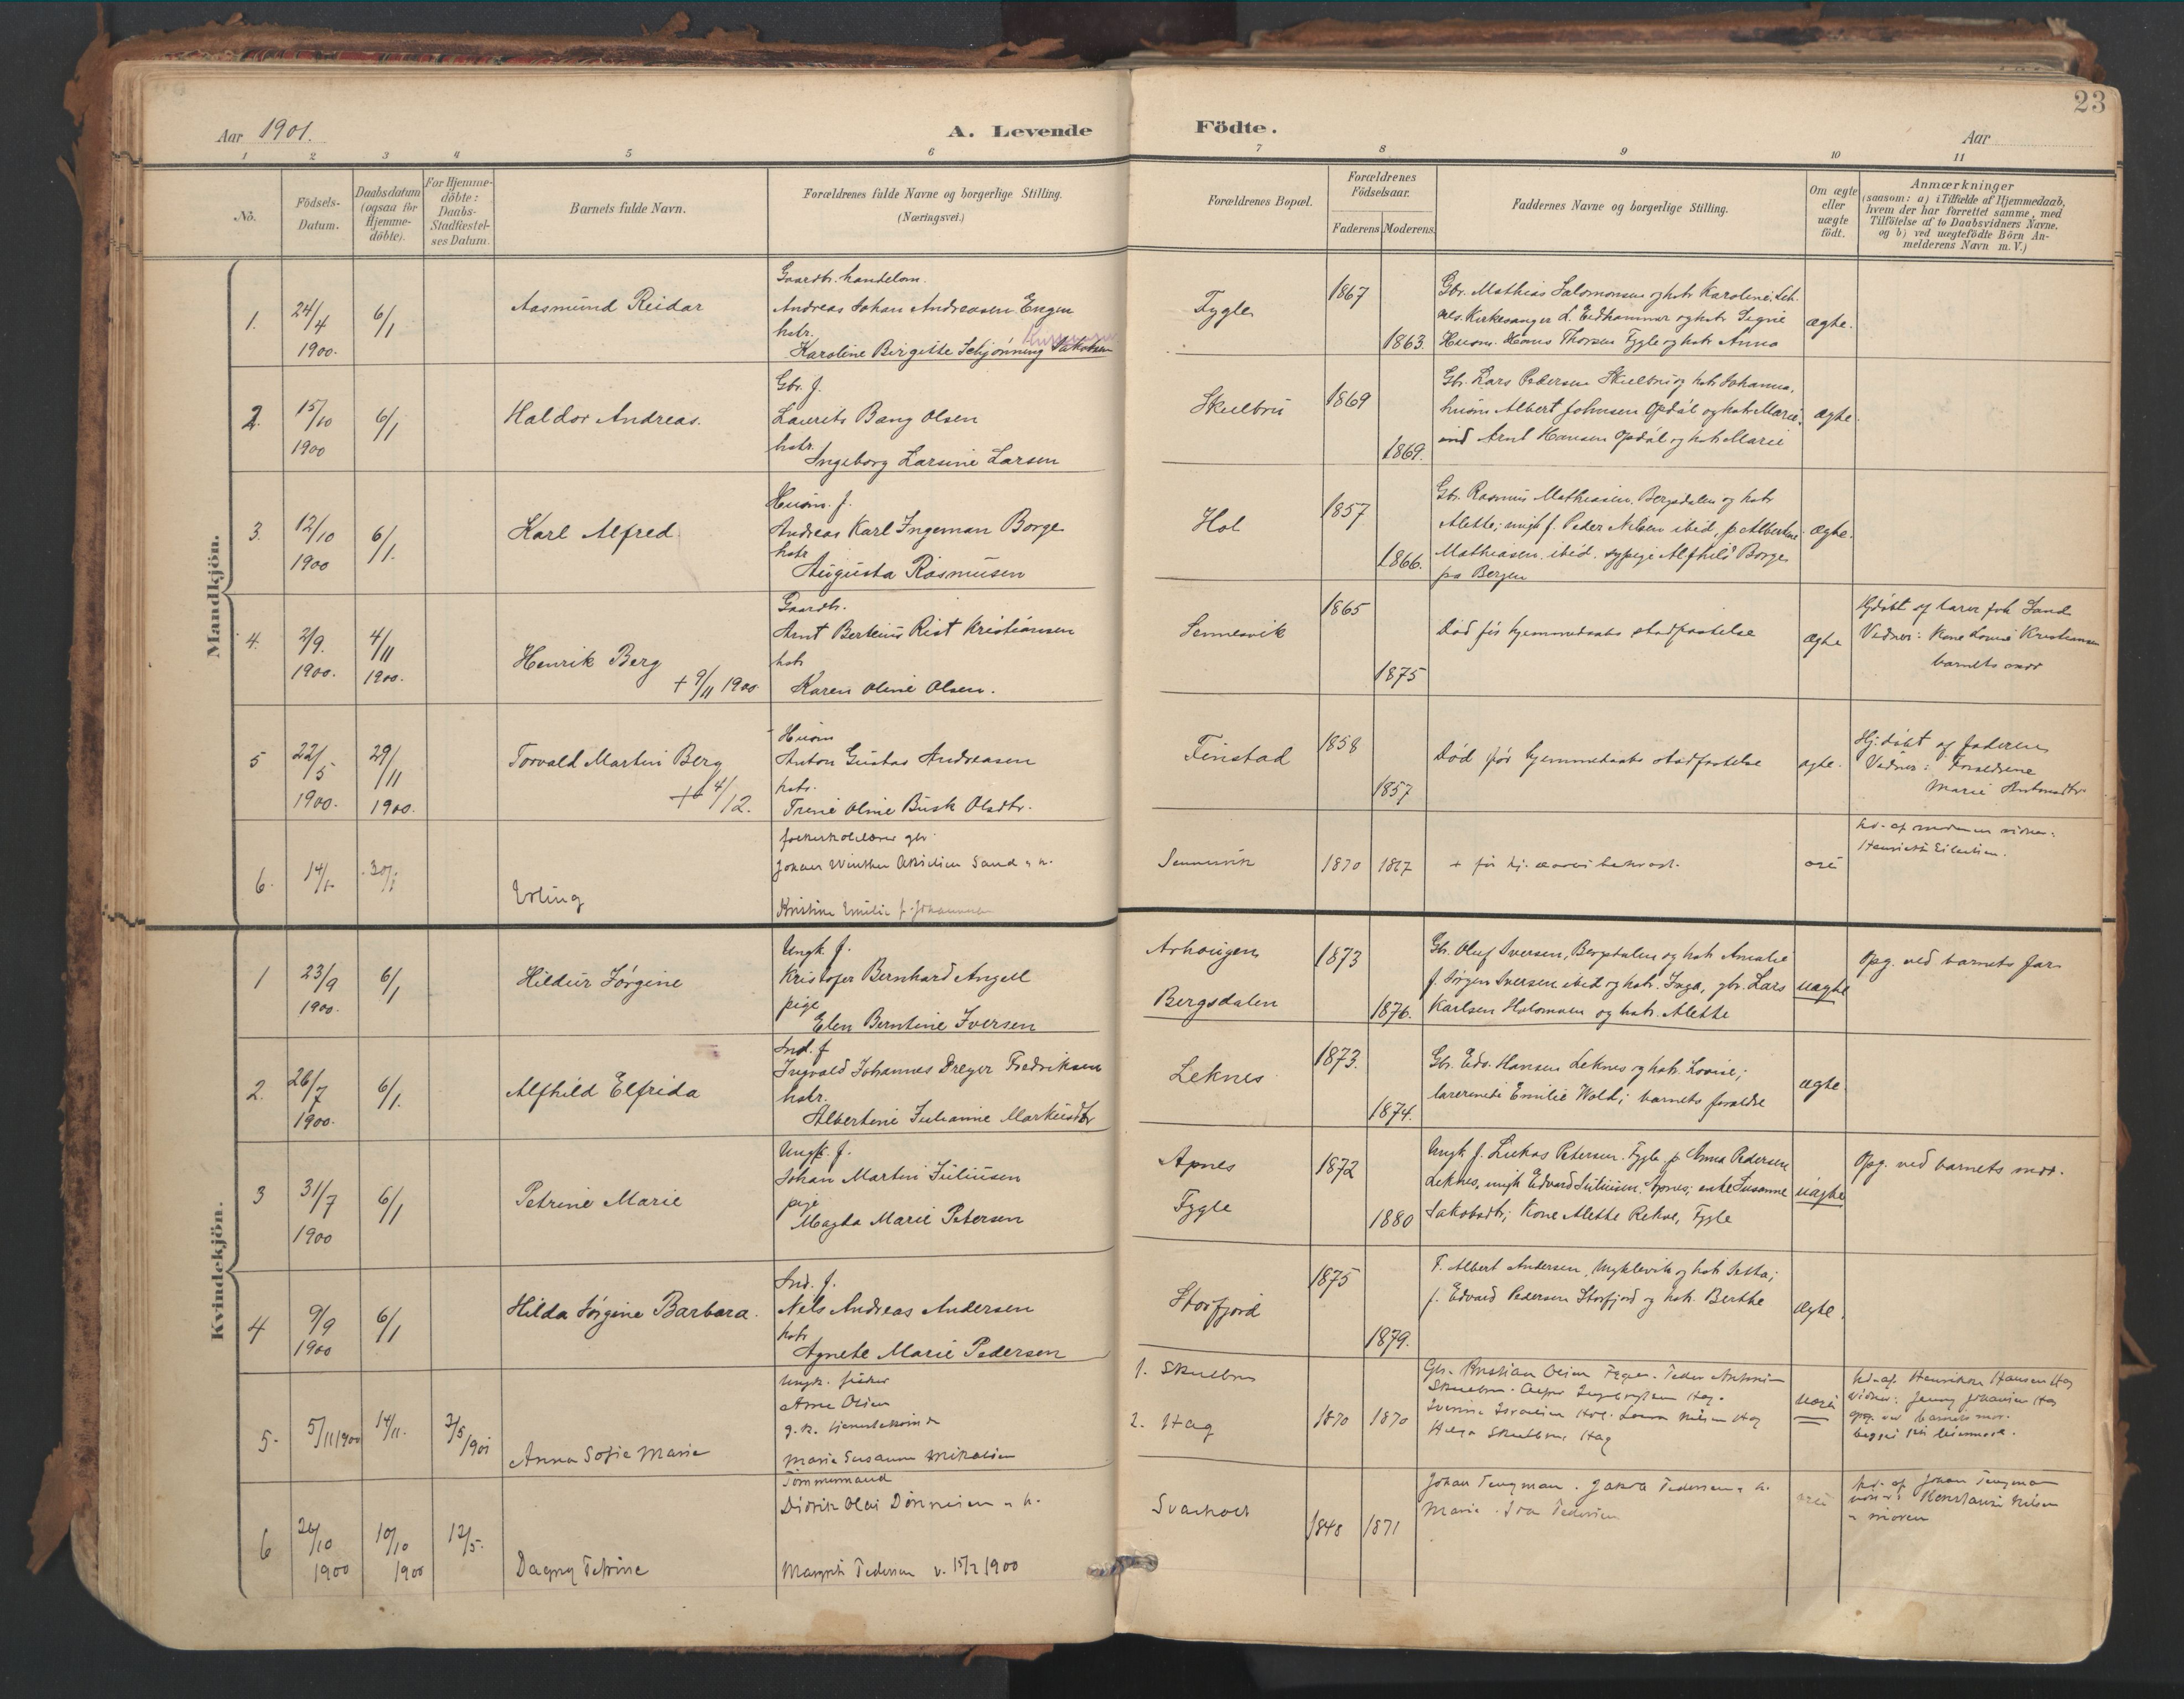 Aar 1901.
A. Levende
Födte.
Aar
23
1 2 3 4 5 6 7 8 9 10 11
No.
Födsels-
Datum.
Daabsdatum
(ogsaa for
Hjemme-
döbte).
For Hjemme-
döbte:
Daabs-
Stadfæstel-
ses Datum.
Barnets fulde Navn.
Forældrenes fulde Navne og borgerlige Stilling.
(Næringsvei.)
Forældrenes Bopæl.
Forældrenes
Födselsaar.
Faderens Moderens.
Faddernes Navne og borgerlige Stilling.
Om ægte
eller
uægte
födt.
Anmærkninger
(saasom: a) i Tilfælde af Hjemmedaab,
hvem der har forrettet samme, med
Tilföielse af to Daabsvidners Navne,
og b) ved uægtefödte Börn An-
melderens Navn m. V.)
Mandkjön.
1.
24/4
1900.
6/1
Aasmund Reidar
Gaardbr. handelsm.
Andreas Johan Andreassen Engen
hstr.
Karoline Birgitte Schjønning
Fygle
1867
1863.
Gbr. Mathias Salomonsen og hstr Karoline
Kirkesanger L. Eidhammer og hstr Signe
Husm. Hans Thorsen Fygle og hstr Anna
ægte.
2.
15/10
1900
6/1
Haldor Andreas.
Gbr. f.
Laurits Bang Olsen
hstr.
Ingeborg Larsine Larsen
Skulbru
1869
1869.
Gbr. Lars Pedersen Skulbru og hstr Johanna,
husm Albert Johnsen Opdøl og hstr Marie,
ind Arnt Hansen Opdøl og hstr Marie
ægte.
3.
12/10
1900
6/1.
Karl Alfred.
Husm. f.
Andreas Karl Ingeman Borge
hstr
Augusta Rasmusen
Hol
1857
1866.
Gbr. Rasmus Mathiasen, Bergsdalen og hstr
Alette; ungk f. Peder Nilsen ibid, p. Albertine
Mathiasen ibid. sypige Alfhild Borge
fra Bergen
ægte.
4.
2/9.
1900.
4/11
1900.
Henrik Berg
+ 9/11 1900.
Gaardbr.
Arnt Berteus Rist Kristiansen
hstr
Karen Oline Olsen.
Sennesvik
1865
1875
Død før hjemmedaabs stadfæstelse
ægte
Hjdøbt af lærer Joh Sand
Vidner: Kone Louise Kristiansen
barnets mor
5
22/5
1900.
29/11
1900.
Torvald Martin Berg
+ 4/12.
Husm
Anton Gustav Andreasen
hstr.
Trine Oline Busk Olsdtr.
Finstad
1858
1857
Død før hjemmedaabs stadfæstelse
ægte.
Hj.døbt af faderen
Vidner: Forældrene
Marie Antonsdtr.
6.
14/1
30/1
Erling
Johan Winther Sand
Kristine Emilie
Sennesvik
1870
1867
+ før hj.
Kvindekjön.
1
23/9
1900.
6/1
Hildur Jørgine
Ungk f.
Kristofer Bernhard Angell
pige
Elen Berntine Iversen
Arhaugen
Bergsdalen
1873
1876.
Gbr. Oluf Iversen, Bergsdalen og hstr Amalie
f. Jørgen Iversen ibid og hstr. Inga, gbr. Lars
Karlsen Holsmoen og hstr. Alette
uægte
Opg. ved barnets far
2.
26/7
1900.
6/1.
Alfhild Elfrida
Ind. f
Ingvald Johannes Dreyer Fredriksen
hstr.
Albertine Julianne Markusdtr
Leknes
1873.
1874.
Gbr. Edv. Hansen Leknes og hstr. Lovise;
lærerinde Emilie Wold; barnets forældre
ægte.
3
31/7
1900
6/1
Petrine Marie
Ungk. f.
Johan Martin Juliusen
pige
Magda Marie Petersen
Apnes
Fygle
1872
1880
Ungk f. Lukas Petersen. Fygle p Anna Pedersen
Leknes, ungk Edvard Juliusen, Apnes; enke Susanne
Jakobsdtr; Kone Alette Rekve, Fygle
uægte
Opg. ved barnets mor.
4
9/9
1900
6/1
Hilda Jørgine Barbara.
Ind. f.
Nils Andreas Andersen
hstr
Agnete Marie Pedersen
Storfjord
1875
1879.
F. Albert Andersen, Myklevik og hstr Jetta;
f. Edvard Pedersen Storfjord og hstr. Berthe
ægte.
5.
5/11 1900
14/11.
7/5 1901
Anna Sofie Marie
Ungk. fisker
Arne Olsen
Marie Susanna Mikalsen
1. Skulbru
2. Hag
1870
1870
Gbr. Kristian Olsen
Hag
Hd. af Henrikka Hansen Hag
vidner: Jenny Johansen Hag
opg. ved barnets mor.
6
26/10
1900
10/10
1900
12/5.
Dagny Petrine
Tømmermand
Didrik Olai Dønnesen
Margrete Pedersen v. 15/7 1900
Svarholt
1848
1871
Johan Tengman. Jakob Pedersen
Marie. Ida Pedersen
Hd. af Johan Tengman
Konstanse Nilsen